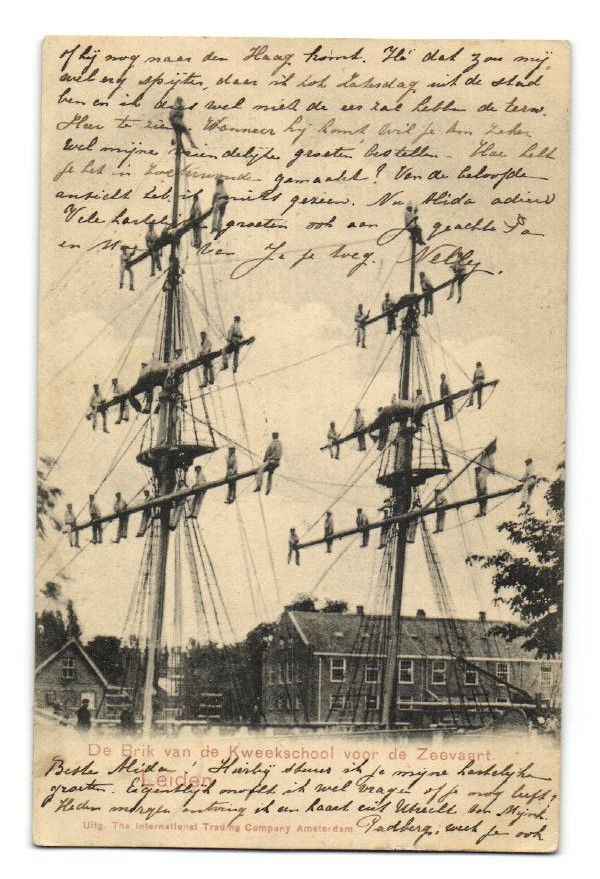 of hij nog naar den Haag komt. Hé dat zou mij
wel erg spijten, daar ik tot Zaterdag uit de stad
ben en ik dus wel niet de eer zal hebben de
Hier te zien. Wanneer hij komt, wil je hem zeker
wel mijne vriendelijke groeten bestellen. Hoe hebt
je het in Zoeterwoude gemaakt? Van de beloofde
ansicht heb ik niets gezien. Nu Alida adieu
Vele hartelijke groeten ook aan je geachte Pa
en van Je je weg. Nelly.
De Brik van de Kweekschool voor de Zeevaart.
Leiden.
Beste Alida! Hierbij stuur ik je mijne hartelijke
groeten. Eigenlijk mocht ik wel vragen of je nog leeft?
Heden morgen ontving ik een kaart uit Utrecht van Mijnh.
Uitg. The International Trading Company Amsterdam
Padberg, weet je ook